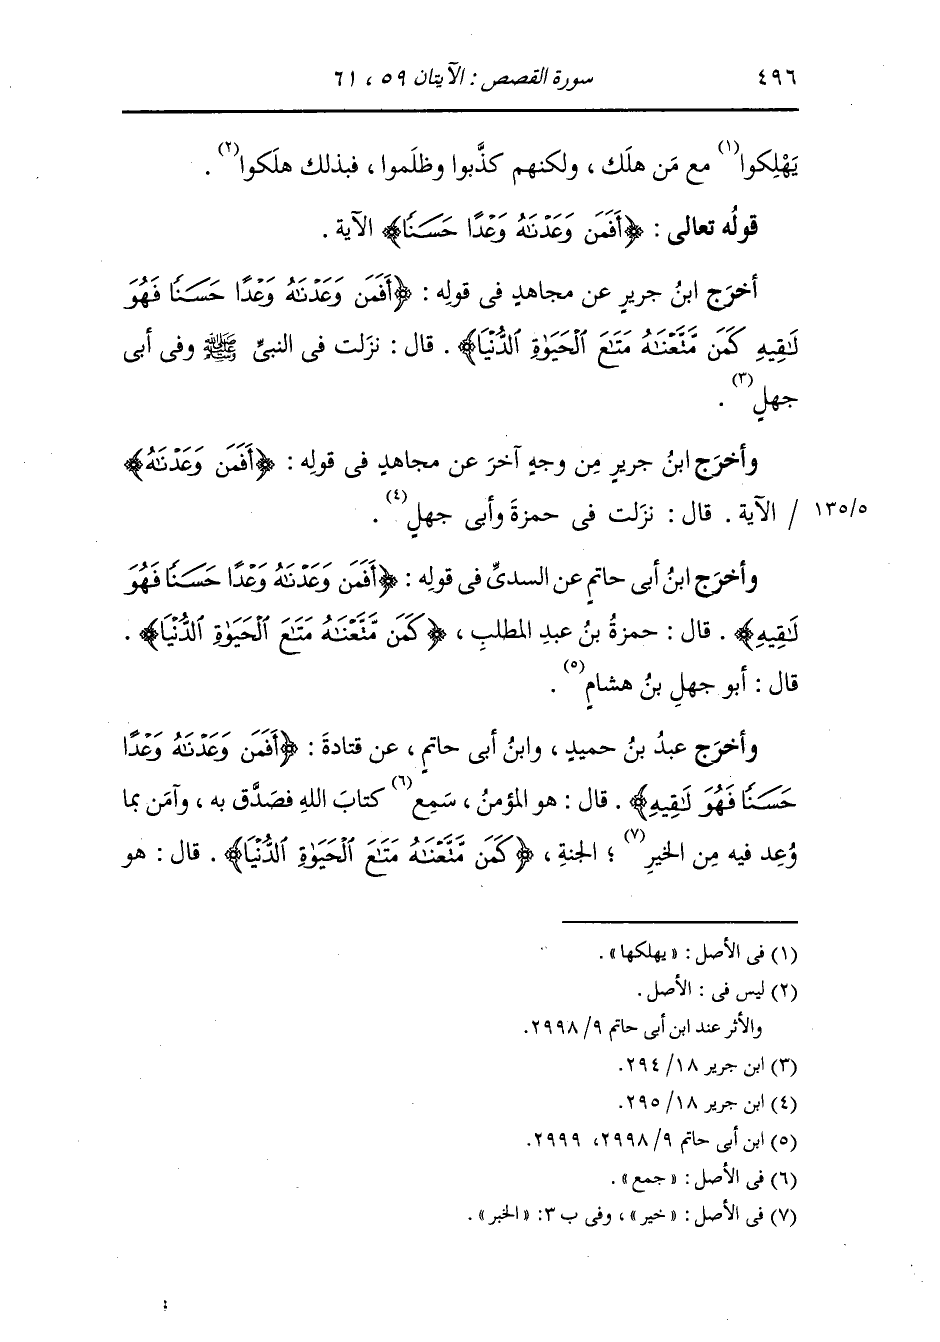 ٤٩٦ سورة القصص : الآيتان ٥٩ ، ٦١
يَهْلِكوا(١) مع مَن هلَك ، ولكنهم كذَّبوا وظلَموا ، فبذلك هلَكوا(٢) .
قولُه تعالى : ﴿أَفَمَن وَعَدْنَٰهُ وَعْدًا حَسَنًا﴾ الآية .
أخرَج ابنُ جريرٍ عن مجاهدٍ فى قولِه : ﴿أَفَمَن وَعَدْنَٰهُ وَعْدًا حَسَنًا فَهُوَ
لَٰقِيهِ كَمَن مَّتَّعْنَٰهُ مَتَٰعَ ٱلْحَيَوٰةِ ٱلدُّنْيَا﴾ . قال : نزَلت فى النبىِّ ﷺ وفى أبى
جهلٍ(٣) .
وأخرَج ابنُ جريرٍ مِن وجهٍ آخرَ عن مجاهدٍ فى قولِه : ﴿أَفَمَن وَعَدْنَٰهُ﴾
١٣٥/٥ / الآية . قال : نزَلت فى حمزةَ وأبى جهلٍ(٤) .
وأخرَج ابنُ أبى حاتمٍ عن السدىِّ فى قولِه : ﴿أَفَمَن وَعَدْنَٰهُ وَعْدًا حَسَنًا فَهُوَ
لَٰقِيهِ﴾ . قال : حمزةُ بنُ عبدِ المطلبِ ، ﴿كَمَن مَّتَّعْنَٰهُ مَتَٰعَ ٱلْحَيَوٰةِ ٱلدُّنْيَا﴾ .
قال : أبو جهلِ بنُ هشامٍ(٥) .
وأخرَج عبدُ بنُ حميدٍ ، وابنُ أبى حاتمٍ ، عن قتادةَ : ﴿أَفَمَن وَعَدْنَٰهُ وَعْدًا
حَسَنًا فَهُوَ لَٰقِيهِ﴾ . قال : هو المؤمنُ ، سَمِع(٦) كتابَ اللهِ فصَدَّق به ، وآمَن بما
وُعِد فيه مِن الخيرِ(٧) ؛ الجنةِ ، ﴿كَمَن مَّتَّعْنَٰهُ مَتَٰعَ ٱلْحَيَوٰةِ ٱلدُّنْيَا﴾ . قال : هو
(١) فى الأصل : «يهلكها» .
(٢) ليس فى : الأصل .
والأثر عند ابن أبى حاتم ٩/ ٢٩٩٨.
(٣) ابن جرير ١٨/ ٢٩٤.
(٤) ابن جرير ١٨/ ٢٩٥.
(٥) ابن أبى حاتم ٩/ ٢٩٩٨، ٢٩٩٩.
(٦) فى الأصل : «جمع» .
(٧) فى الأصل : «خير» ، وفى ب ٣: «الخبر» .